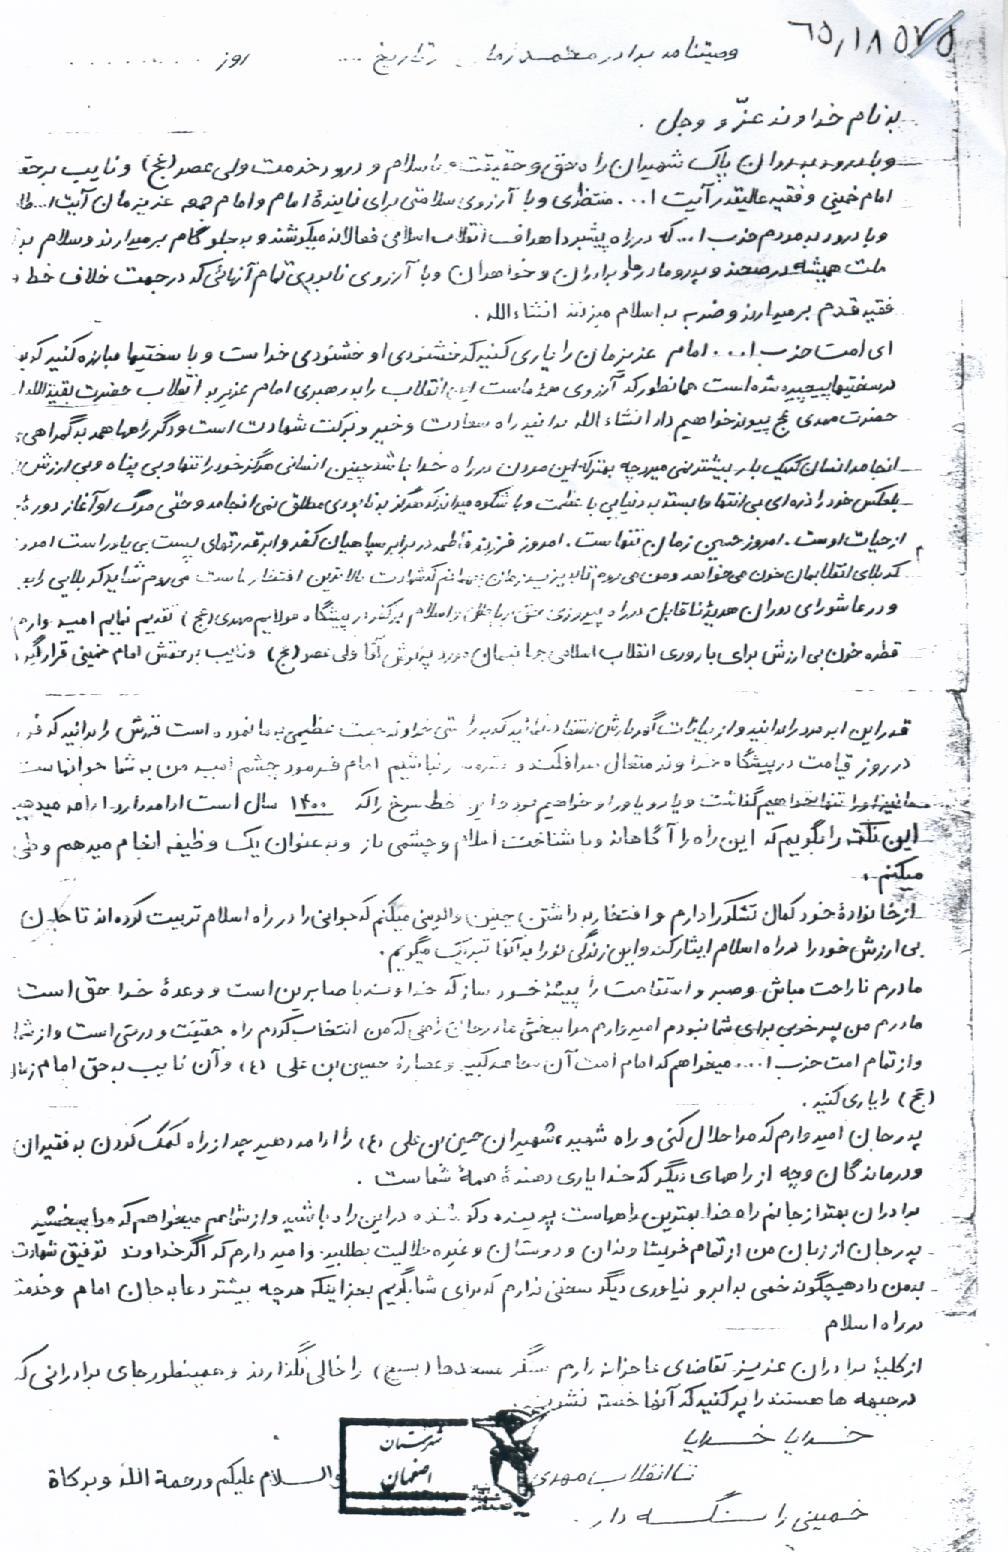 ۶۵,۱۸۵۷۵
وصیتنامه برادر محمد زمانی تاریخ ..... روز ..........
به نام خداوند عزّ و وجل .
و با درود به روان پاک شهیدان راه حق و حقیقت اسلام و درود خدمت ولی عصر (عج) و نایب برحق
امام خمینی و فقیه عالیقدر آیت ا... منتظری و با آرزوی سلامتی برای نمایندهٔ امام و امام جمعه عزیزمان آیت ا...
و با درود به مردم حزب ا... که در راه پیشبرد اهداف انقلاب اسلامی فعالانه میکوشند و به جلو گام برمیدارند و سلام به
ملت همیشه در صحنه و پدر و مادرم و برادران و خواهران و با آرزوی نابودی تمام آنهائی که در جهت خلاف خط
فقیه قدم برمیدارند و ضربه به اسلام میزنند انشاءالله .
ای امت حزب ا... امام عزیزمان را یاری کنید که خشنودی او خشنودی خداست و با سختیها مبارزه کنید که
در سختیها پیچیده شده است همانطور که آرزوی همهٔ ماست این انقلاب را به رهبری امام عزیز به انقلاب حضرت بقیة الله
حضرت مهدی عج پیوند خواهیم داد انشاء الله بدانید راه سعادت و خیر و برکت شهادت است و دگر راهها همه به گمراهی
انجامد انسان که یک بار بیشتر نمی میرد چه بهتر که این مردن در راه خدا باشد چنین انسانی هرگز خود را تنها و بی پناه و بی ارزش
بلعکس خود را ذره ای بی انتها وابسته به دنیایی با عظمت و با شکوه میداند که هرگز به نابودی مطلق نمی انجامد و حتی مرگ او آغاز دورهٔ
از حیات اوست . امروز حسین زمان تنهاست . امروز فرزند فاطمه در برابر سپاهیان کفر و ابرقدرتهای پست بی یاور است امروز
کربلای انقلابمان خون می خواهد و من می روم تا به یزید زمان بفهمانم که شهادت بالاترین افتخار ماست می روم شاید کربلایی
و در عاشورای دوران هدیهٔ ناقابل در راه پیروزی حق بر باطل و اسلام بر کفر در پیشگاه مولایم مهدی (عج) تقدیم نمایم امیدوارم
قطره خون بی ارزش برای باروری انقلاب اسلامی جهانیمان مورد پذیرش آقا ولی عصر (عج) و نایب برحقش امام خمینی قرار گیرد
قدر این ابرمرد را بدانید و از بیانات گهربارش استفاده نمائید که براستی خداوند نعمت عظیمی به ما نموده است قدرش را بدانید که
در روز قیامت در پیشگاه خداوند متعال سرافکنده و شرمسار نباشیم امام فرمود چشم امید من به شما جوانهاست
ما نیز او را تنها نخواهیم گذاشت و یار و یاور او خواهیم بود و این خط سرخ را که ۱۴۰۰ سال است ادامه دارد ادامه میدهیم
این نکته را بگویم که این راه را آگاهانه و با شناخت اسلام و چشمی باز و به عنوان یک وظیفه انجام میدهم و طی
میکنم .
از خانوادهٔ خود کمال تشکر را دارم و افتخار به داشتن چنین والدینی میکنم که جوانی را در راه اسلام تربیت کرده اند تا جان
بی ارزش خود را در راه اسلام ایثار کند و این زندگی نو را به آنها تبریک میگویم .
مادرم ناراحت مباش و صبر و استقامت را پیشهٔ خود ساز که خداوند با صابرین است و وعدهٔ خدا حق است
مادرم من پسر خوبی برای شما نبودم امیدوارم مرا ببخشی مادرجان راهی که من انتخاب کردم راه حقیقت و درستی است و از شما
و از تمام امت حزب ا... میخواهم که امام امت آن مجاهد کبیر و عصارهٔ حسین بن علی (ع) و آن نایب به حق امام زمان
(عج) را یاری کنید .
پدرجان امیدوارم که مرا حلال کنی و راه شهید شهیدان حسین بن علی (ع) را ادامه دهید چه از راه کمک کردن به فقیران
و درماندگان و چه از راههای دیگر که خدا یاری دهندهٔ همهٔ شماست .
برادران بهتر از جانم راه خدا بهترین راههاست پوینده و کوشنده در این راه باشید و از شما هم میخواهم که مرا ببخشید
پدرجان از زبان من از تمام خویشاوندان و دوستان و غیره حلالیت بطلبید و امید دارم که اگر خداوند توفیق شهادت
به من داد هیچگونه خمی به ابرو نیاوری دیگر سخنی ندارم که برای شما بگویم بجز اینکه هرچه بیشتر دعا به جان امام و خدمت
در راه اسلام
از کلیهٔ برادران عزیز تقاضای عاجزانه دارم سنگر مسجدها (بسیج) را خالی نگذارند و همینطور جای برادرانی که
در جبهه ها هستند را پر کنید که آنها خسته نشوند
خدایا خدایا
تا انقلاب مهدی
خمینی را نگه دار .
والسلام علیکم ورحمة الله وبرکاة
شهرستان
اصفهان
بنیاد
شهید